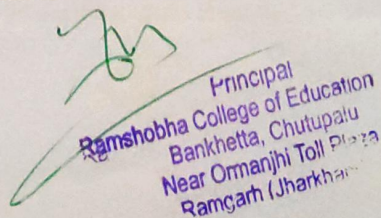 Principal
Ramshobha College of Education
Bankhetta, Chutupalu
Near Ormanjhi Toll Plaza
Ramgarh (Jharkhan